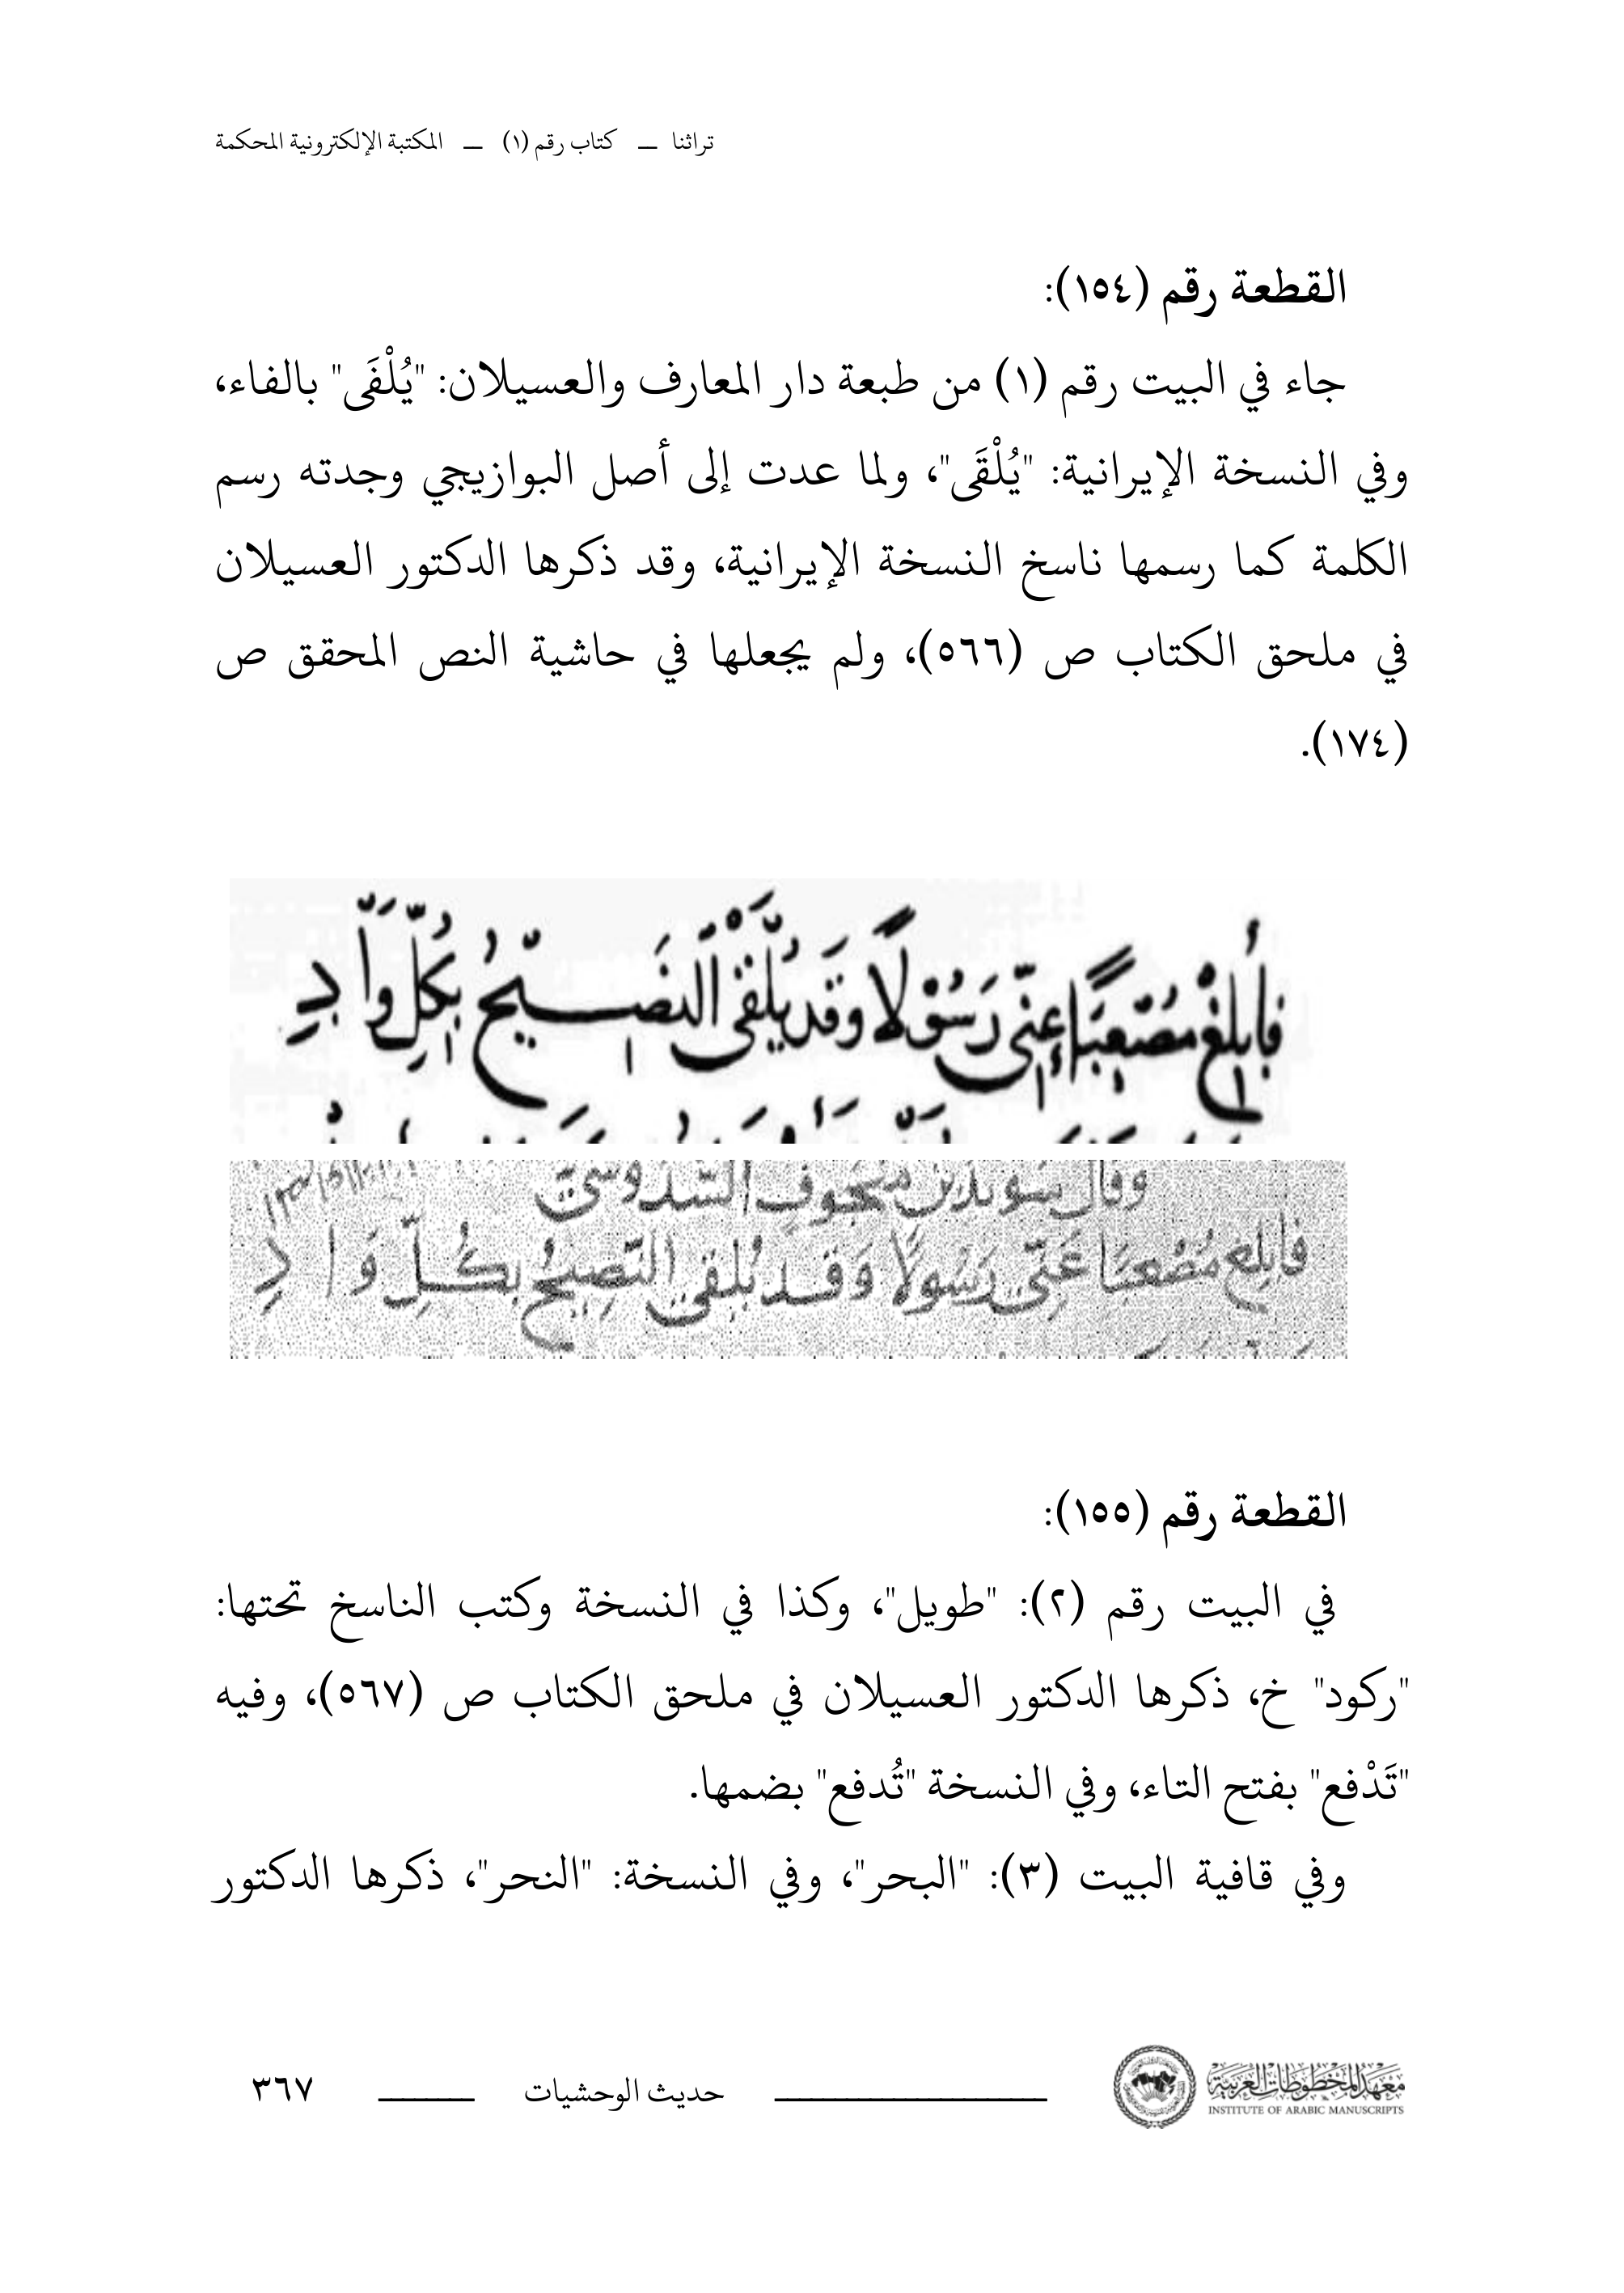 تراثنا — كتاب رقم (١) — المكتبة الإلكترونية المحكمة
القطعة رقم (١٥٤):
جاء في البيت رقم (١) من طبعة دار المعارف والعسيلان: "يُلْفَى" بالفاء،
وفي النسخة الإيرانية: "يُلْقَى"، ولما عدت إلى أصل البوازيجي وجدته رسم
الكلمة كما رسمها ناسخ النسخة الإيرانية، وقد ذكرها الدكتور العسيلان
في ملحق الكتاب ص (٥٦٦)، ولم يجعلها في حاشية النص المحقق ص
(١٧٤).
فأبلغ مصعبًا عني رسولًا وقد يلقى النصيح بكل واد
وقال سويد بن منجوف السدوسي
فابلغ مصعبا عني رسولا وقد يلقى النصيح بكل واد
القطعة رقم (١٥٥):
في البيت رقم (٢): "طويل"، وكذا في النسخة وكتب الناسخ تحتها:
"ركود" خ، ذكرها الدكتور العسيلان في ملحق الكتاب ص (٥٦٧)، وفيه
"تَدْفع" بفتح التاء، وفي النسخة "تُدفع" بضمها.
وفي قافية البيت (٣): "البحر"، وفي النسخة: "النحر"، ذكرها الدكتور
معهد المخطوطات العربية
INSTITUTE OF ARABIC MANUSCRIPTS
حديث الوحشيات
٣٦٧